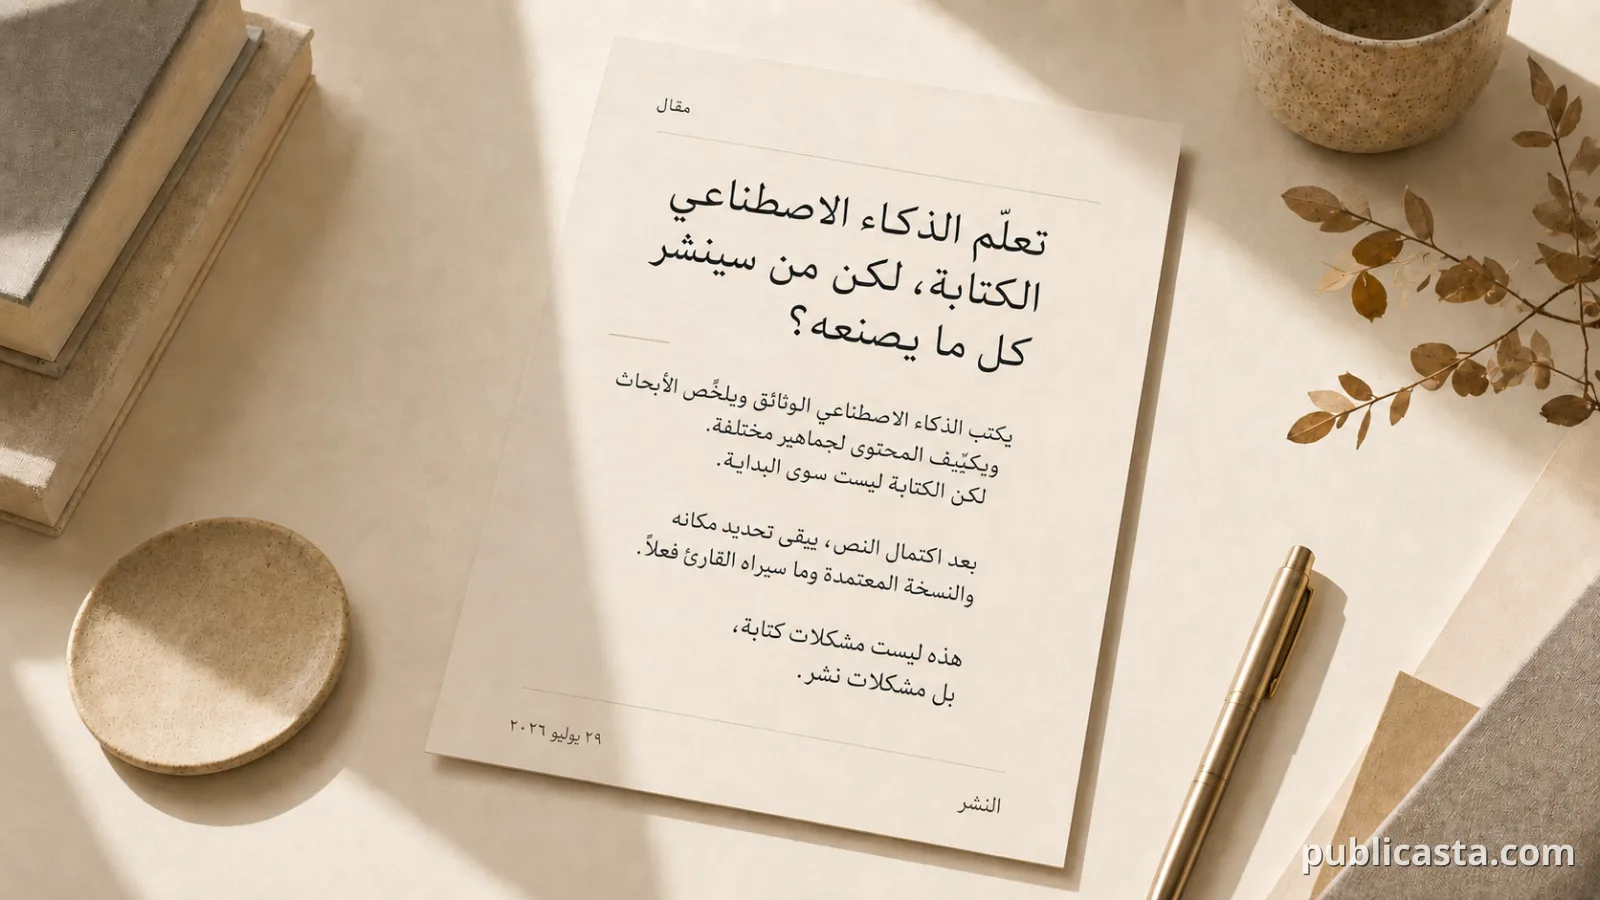 مقال
تعلّم الذكاء الاصطناعي
الكتابة، لكن من سينشر
كل ما يصنعه؟
يكتب الذكاء الاصطناعي الوثائق ويلخّص الأبحاث
ويكيّيف المحتوى لجماهير مختلفة.
لكن الكتابة ليست سوى البداية.
بعد اكتمال النص، يبقى تحديد مكانه
والنسخة المعتمدة وما سيراه القارئ فعلاً.
هذه ليست مشكلات كتابة،
بل مشكلات نشر.
٢٩ يوليو ٢٠٢٦
النشر
publicasta.com